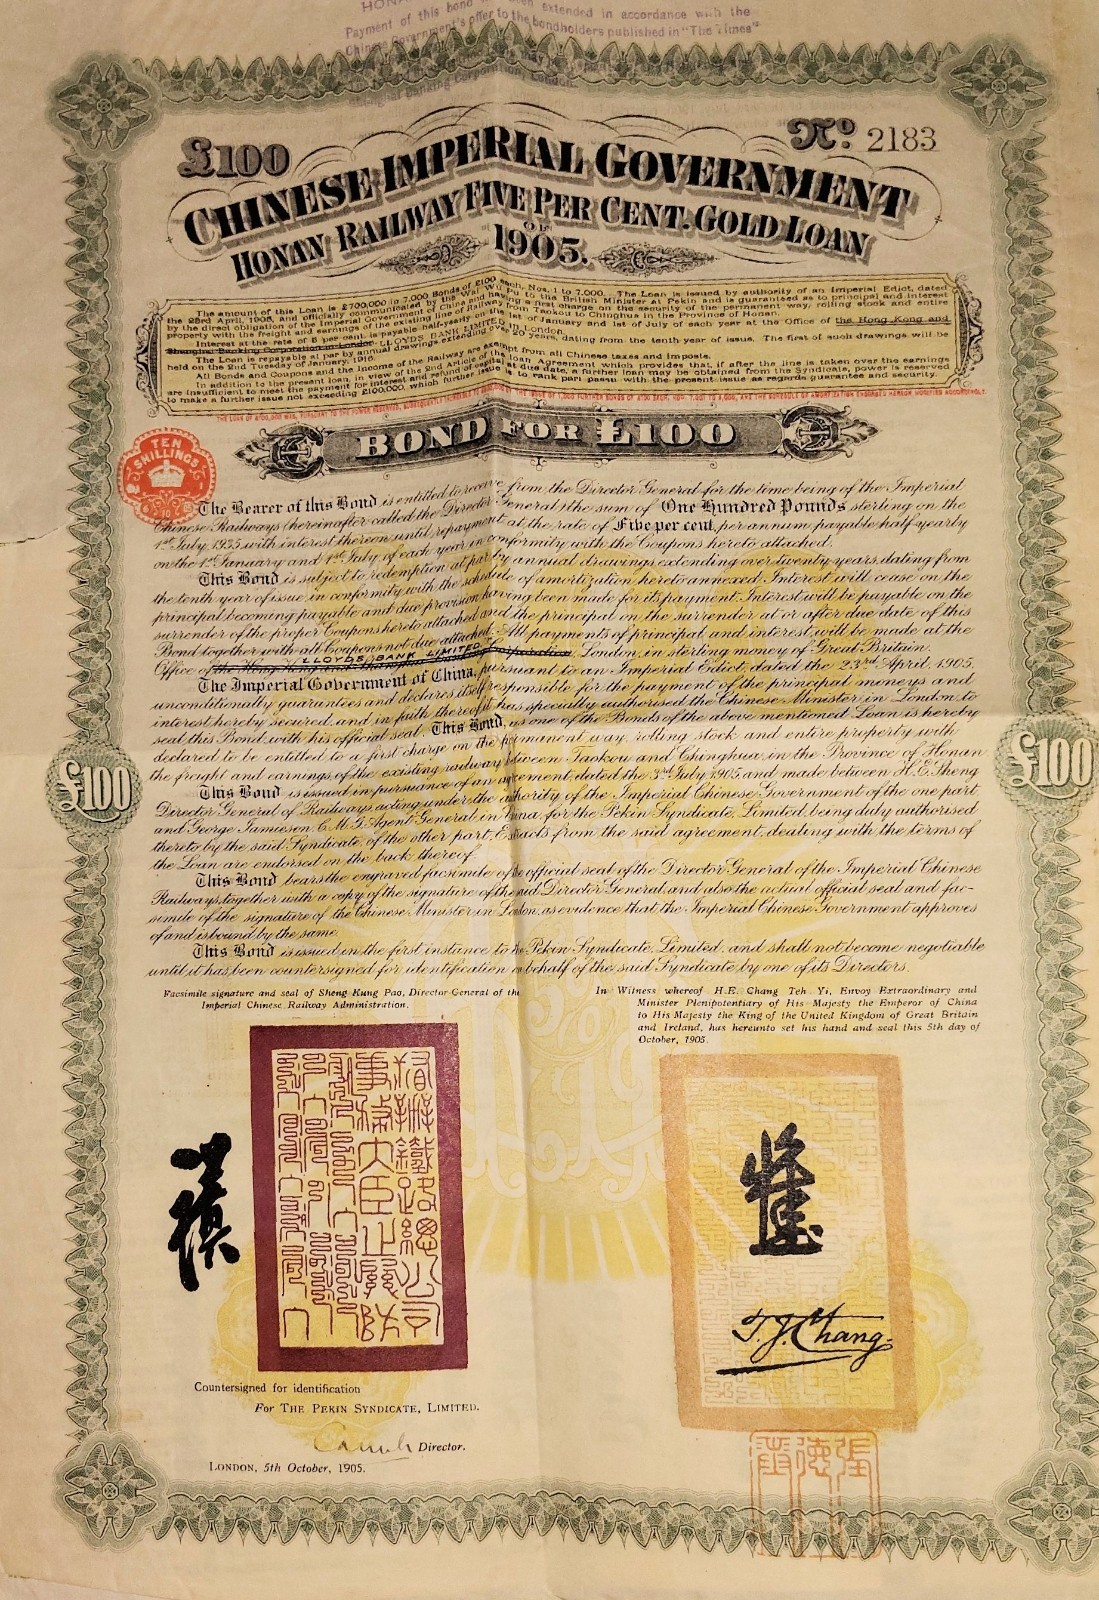 Payment of this bond has been extended in accordance with the
Chinese Government's offer to the bondholders published in "The Times"
Banking Corporation, London.
£100
No. 2183
CHINESE IMPERIAL GOVERNMENT
HONAN RAILWAY FIVE PER CENT. GOLD LOAN
OF
1905.
The amount of this Loan is £700,000 in 7,000 Bonds of £100 each, Nos. 1 to 7,000. The Loan is issued by authority of an Imperial Edict, dated
the 23rd April, 1905, and officially communicated by the Wai Wu Pu to the British Minister at Pekin and is guaranteed as to principal and interest
by the direct obligation of the Imperial Government of China and having a first charge on the security of the permanent way, rolling stock and entire
property with the freight and earnings of the existing line of Railway from Taokou to Chinghua in the Province of Honan.
Interest at the rate of 5 per cent. is payable half-yearly on the 1st of January and 1st of July of each year at the Office of the Hong Kong and
Shanghai Banking Corporation in London. LLOYDS BANK LIMITED, in London.
The Loan is repayable at par by annual drawings extending over 20 years, dating from the tenth year of issue. The first of such drawings will be
held on the 2nd Tuesday of January, 1916.
All Bonds and Coupons and the Income of the Railway are exempt from all Chinese taxes and imposts.
In addition to the present loan, in view of the 2nd Article of the loan Agreement which provides that, if after the line is taken over the earnings
are insufficient to meet the payment for interest and refund of capital at due date, a further loan may be obtained from the Syndicate, power is reserved
to make a further issue not exceeding £100,000, which further issue is to rank pari passu with the present issue as regards guarantee and security.
THE LOAN OF £700,000 WAS, PURSUANT TO THE POWER RESERVED, SUBSEQUENTLY INCREASED TO £800,000 BY THE ISSUE OF 1,000 FURTHER BONDS OF £100 EACH, NOS. 7,001 TO 8,000, AND THE SCHEDULE OF AMORTIZATION ENDORSED HEREON MODIFIED ACCORDINGLY.
BOND FOR £100
TEN
SHILLINGS
The Bearer of this Bond is entitled to receive from the Director General for the time being of the Imperial
Chinese Railways (hereinafter called the Director General) the sum of One Hundred Pounds sterling on the
1st July 1935 with interest thereon until repayment at the rate of Five per cent. per annum payable half-yearly
on the 1st January and 1st July of each year in conformity with the Coupons hereto attached.
This Bond is subject to redemption at par by annual drawings extending over twenty years, dating from
the tenth year of issue in conformity with the schedule of amortization hereto annexed. Interest will cease on the
principal becoming payable and due provision having been made for its payment. Interest will be payable on the
surrender of the proper Coupons hereto attached and the principal on the surrender at or after due date of this
Bond together with all Coupons not due attached. All payments of principal and interest will be made at the
Office of LLOYDS BANK LIMITED Corporation, London, in sterling money of Great Britain.
The Imperial Government of China, pursuant to an Imperial Edict, dated the 23rd April, 1905,
unconditionally guarantees and declares itself responsible for the payment of the principal moneys and
interest hereby secured, and in faith thereof it has specially authorised the Chinese Minister in London, to
seal this Bond with his official seal. This Bond, as one of the Bonds of the above mentioned Loan is hereby
declared to be entitled to a first charge on the permanent way, rolling stock and entire property with
the freight and earnings, of the existing railway between Taokou and Chinghua, in the Province of Honan
This Bond is issued in pursuance of an agreement, dated the 3rd July 1905, and made between H.E. Sheng
Director General of Railways acting under the authority of the Imperial Chinese Government of the one part
and George Jamieson, C.M.G. Agent General in China, for the Pekin Syndicate, Limited, being duly authorised
thereto by the said Syndicate, of the other part. Extracts from the said agreement, dealing with the terms of
the Loan are endorsed on the back thereof.
This Bond bears the engraved facsimile of the official seal of the Director General of the Imperial Chinese
Railways, together with a copy of the signature of the said Director General, and also the actual official seal and fac-
simile of the signature of the Chinese Minister in London, as evidence that the Imperial Chinese Government approves
of and is bound by the same.
This Bond is issued in the first instance to the Pekin Syndicate, Limited, and shall not become negotiable
until it has been countersigned for identification on behalf of the said Syndicate by one of its Directors.
£100
£100
Facsimile signature and seal of Sheng Kung Pao, Director-General of the
Imperial Chinese Railway Administration.
In Witness whereof H.E. Chang Teh Yi, Envoy Extraordinary and
Minister Plenipotentiary of His Majesty the Emperor of China
to His Majesty the King of the United Kingdom of Great Britain
and Ireland, has hereunto set his hand and seal this 5th day of
October, 1905.
T. J. Chang.
Countersigned for identification
For THE PEKIN SYNDICATE, LIMITED.
Director.
LONDON, 5th October, 1905.
張德彝